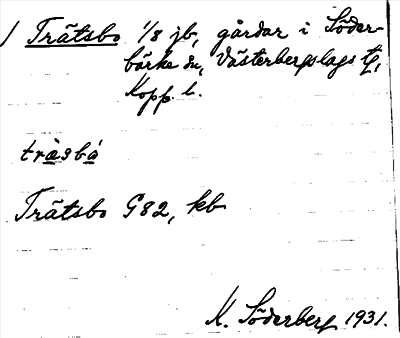 / Trätsbo 1/8 jb, gårdar i Söder-
bärke sn, Västerbergslags tg,
Kopp. l.
tràsbá
Trätsbo G82, kb
K. Söderberg 1931.